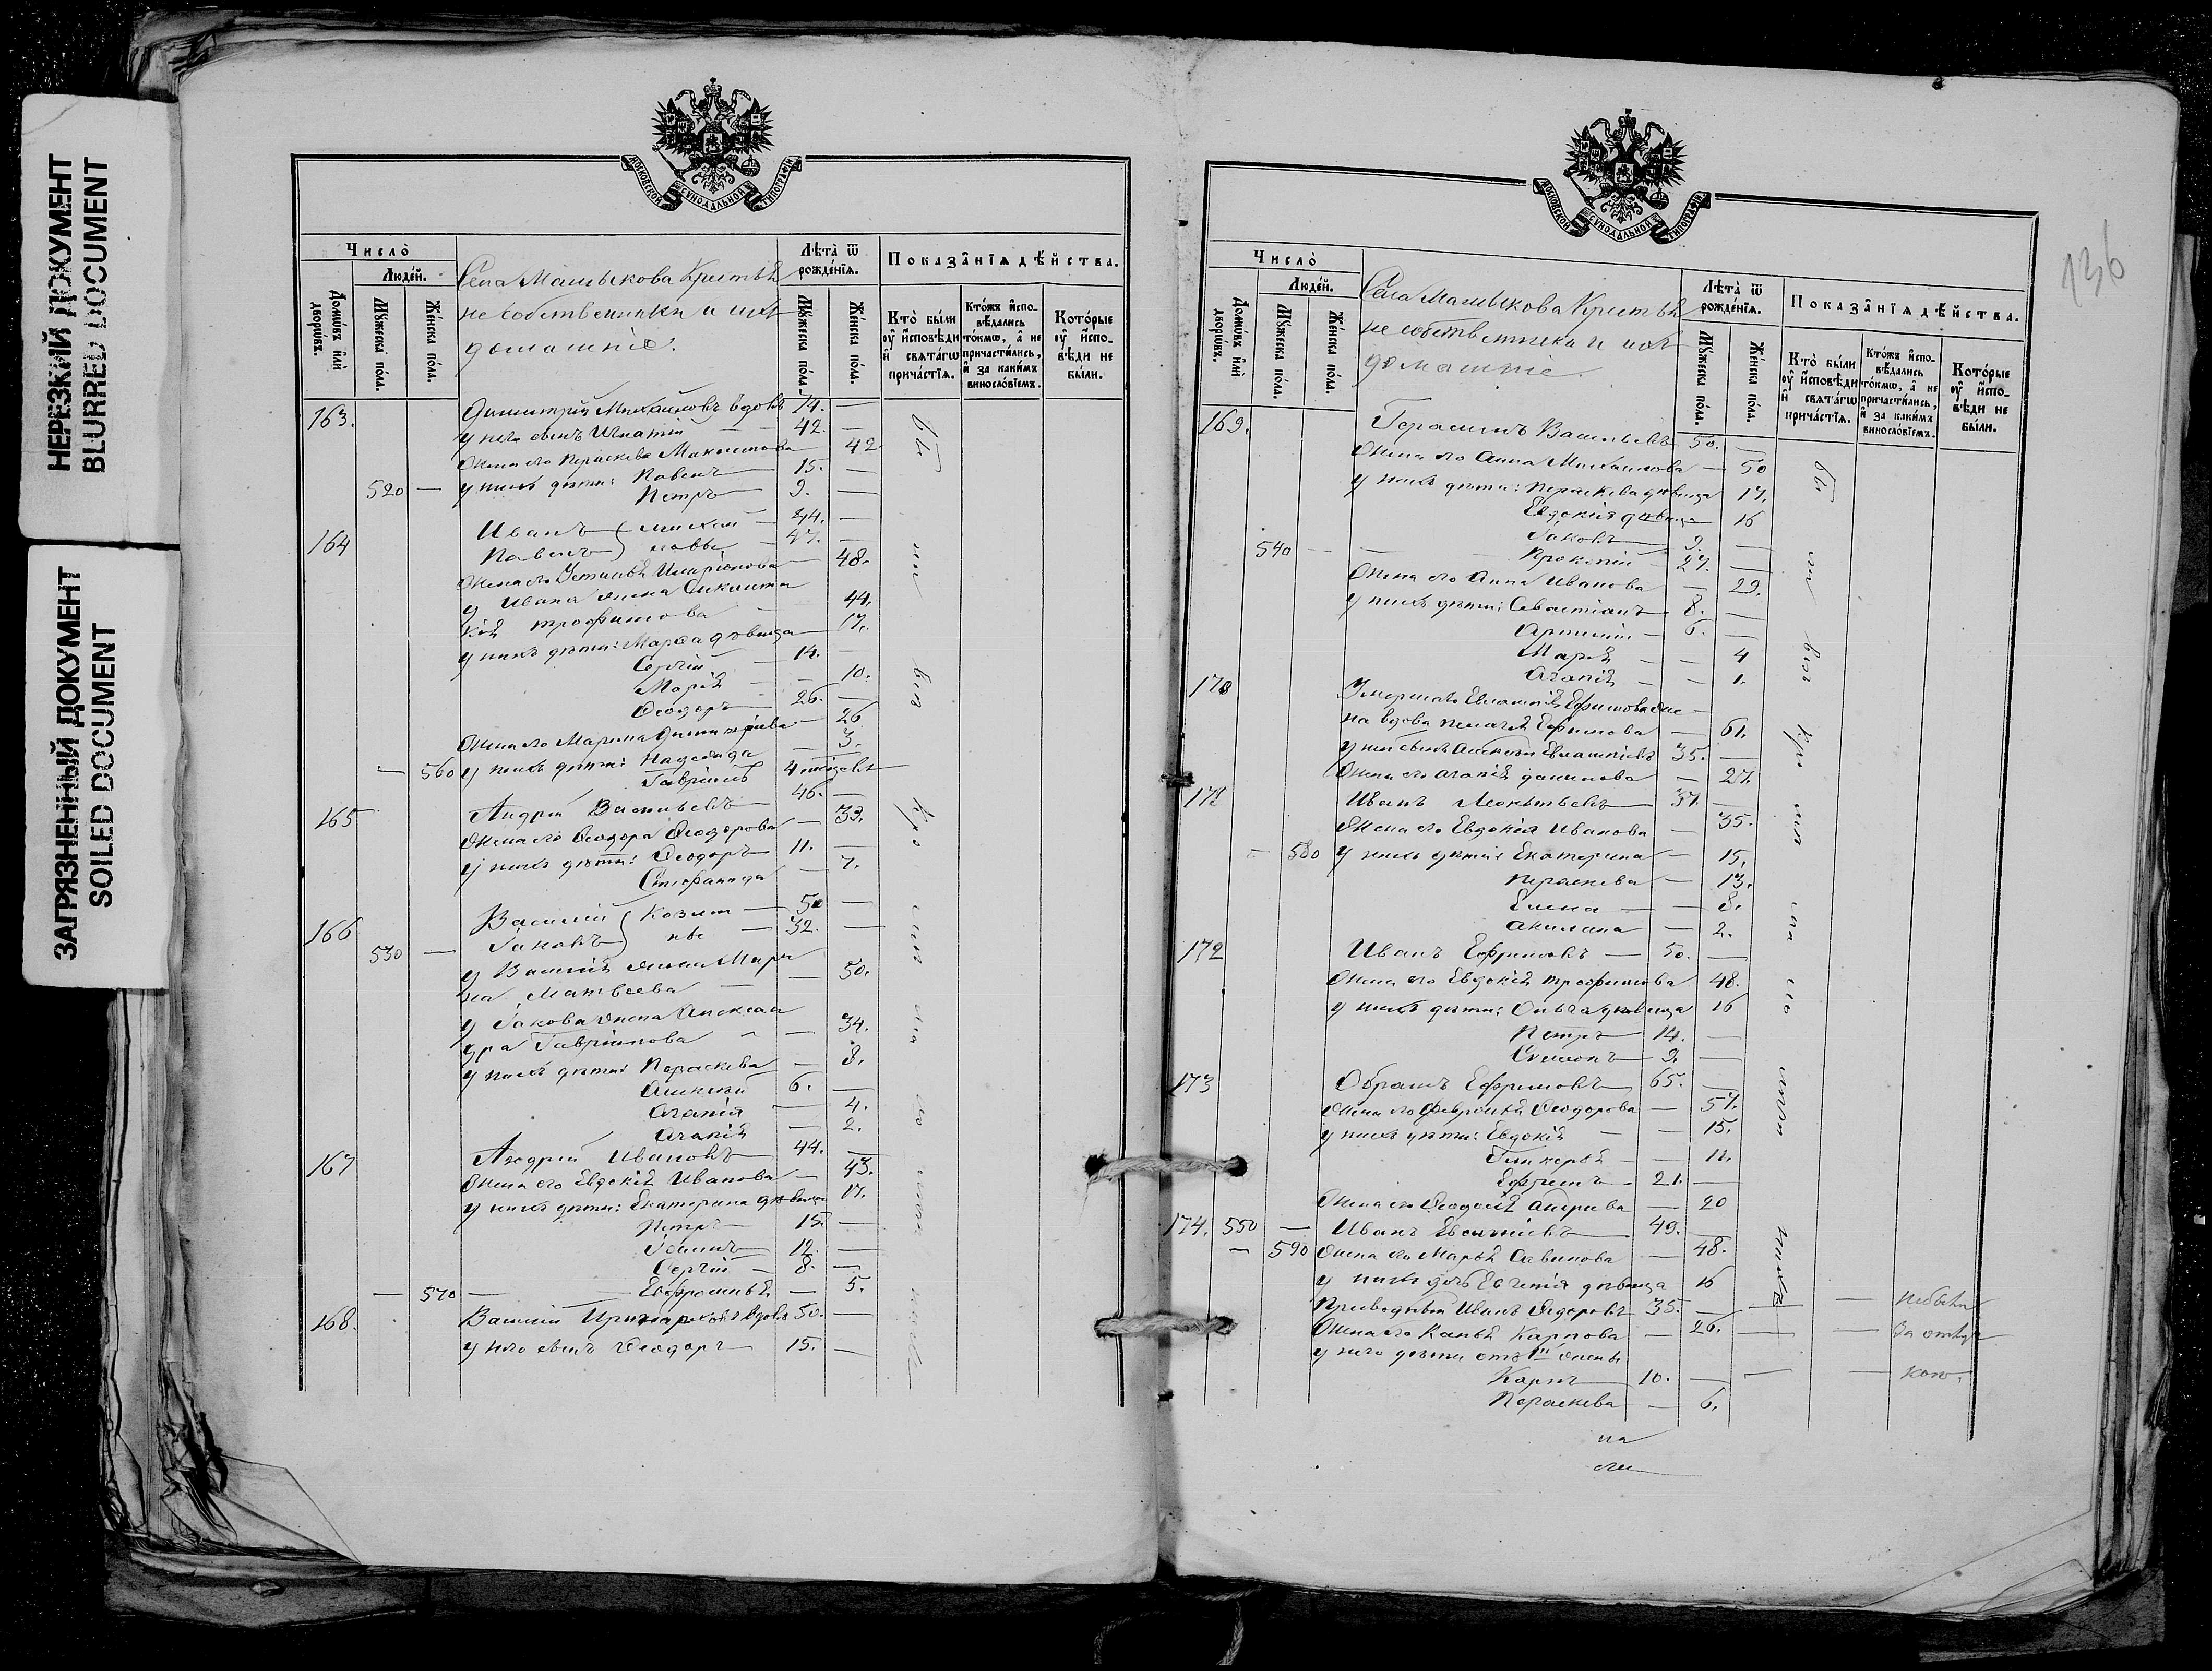 НЕРЕЗКИЙ ДОКУМЕНТ
BLURRED DOCUMENT
ЗАГРЯЗНЕННЫЙ ДОКУМЕНТ
SOILED DOCUMENT
МОСКОВСКОЙ СѴНОДАЛЬНОЙ ТИПОГРАФІИ
Число̀
Людей.
Домѡвъ и҆лѝ дворѡвъ.
Мꙋ́жеска по́ла.
Же́нска по́ла.
Села Малыкова Крестья
не собственники и ихъ
домашніе.
Лѣта̀ ѿ рожде́нїѧ.
Мꙋ́жеска по́ла.
Же́нска по́ла.
Показа̑нїѧ дѣ́йства.
Кто̀ бы́ли оу҆ и҆сповѣди и҆ свѧта́гѡ прича́стїѧ.
Кто́жъ и҆спо- вѣдались то́кмѡ, а҆ не причасти́лись, и҆ за каки́мъ винослові́емъ.
Кото́рые оу҆ и҆спо- вѣди не бы́ли.
163. Димитрій Михайловъ вдовъ 74. —
у него сынъ Игнатій 42. —
Жена его Параскева Максимова 42
у нихъ дѣти: Павелъ 15. —
520 — Петръ 9. —
164 Иванъ Михай 44. —
Павелъ ловы 47. —
Жена его Устинья Иларіонова 48.
у Ивана жена
Трофимова 44.
у нихъ дѣти: Марфа дѣвица 17.
Сергій 14. —
Марія 10.
Ѳеодоръ 26. —
Жена его Марина Димитріева 26.
— 560 у нихъ дѣти: Надежда 3.
Гавріилъ 4 мѣсяц
165 Андрей Васильевъ 46. —
Жена его Ѳеодора Ѳеодорова 39.
у нихъ дѣти: Ѳеодоръ 11. —
Стефанида 7.
166 Василій Козьм 50 —
530 — Іаковъ ины 32. —
у Василія жена Мари
на Матвѣева 50.
у Іакова жена Алексан
дра Гавріилова 34.
у нихъ дѣти: Параскева 8.
Алексѣй 6. —
Агапія 4.
Агапія 2.
167 Андрей Ивановъ 44. —
Жена его Евдокія Иванова 43.
у нихъ дѣти: Екатерина дѣвица 17.
Петръ 15. —
Іоаннъ 12. —
Сергій 8. —
— 570 — Евфросинья 5.
168. Василій вдовъ 50. —
у него сынъ Ѳеодоръ 15. —
МОСКОВСКОЙ СѴНОДАЛЬНОЙ ТИПОГРАФІИ
136
Число̀
Людей.
Домѡвъ и҆лѝ дворѡвъ.
Мꙋ́жеска по́ла.
Же́нска по́ла.
Села Малыкова Крестья
не собственники и ихъ
домашніе.
Лѣта̀ ѿ рожде́нїѧ.
Мꙋ́жеска по́ла.
Же́нска по́ла.
Показа̑нїѧ дѣ́йства.
Кто̀ бы́ли оу҆ и҆сповѣди и҆ свѧта́гѡ прича́стїѧ.
Кто́жъ и҆спо- вѣдались то́кмѡ, а҆ не причасти́лись, и҆ за каки́мъ винослові́емъ.
Кото́рые оу҆ и҆спо- вѣди не бы́ли.
169. Герасимъ Васильевъ 50. —
Жена его Анна Михаилова — 50
у нихъ дѣти: Параскева дѣвица 17.
Евдокія дѣвица 16
Іаковъ 9. —
540 — Прокопій 27. —
Жена его Анна Иванова — 29.
у нихъ дѣти: Севастіанъ 8. —
Артемій 6. —
Марія — 4
Агапія — 1.
170 Умершаго Евлампія Ефимова же
на вдова Пелагея Ефимова — 61.
у ней сынъ Алексѣй Евлампіевъ 35. —
Жена его Агапія Данилова — 27.
171 Иванъ Леонтьевъ 37. —
Жена его Евдокія Иванова — 35.
— 580 у нихъ дѣти: Екатерина — 15.
Параскева — 13.
Елена — 8.
Акилина — 2.
172 Иванъ Ефимовъ 50. —
Жена его Евдокія Трофимова 48.
у нихъ дѣти: Ольга дѣвица 16
Петръ 14. —
Симеонъ 9. —
173 Абрамъ Ефимовъ 65. —
Жена его Февронія Ѳеодорова — 57.
у нихъ дѣти: Евдокія — 15.
Гликерія — 11.
Ефремъ 21. —
Жена его Ѳеодосія Андреева — 20
174. 550 — Иванъ 49. —
— 590 Жена его Марья Савинова — 48.
у нихъ дочь Евгенія дѣвица 16
Приводный Иванъ Ѳедоровъ 35. — — — Небыли
Жена его Капья Карпова — 26. — — За отлуч
у него дѣти отъ 1й жены
Карпъ 10. — — — кою.
Параскева — 6.